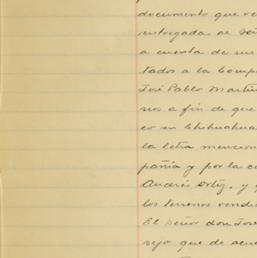 documento que re
entregada al Señ
a cuenta de sus
tados a la Comp
José Pablo Martín
nos a fin de que
co en Chihuahua
la letra mencion
pañía y por la c
Andrés Ortiz, y
los terrenos vend
El señor don José
sejo que de acue